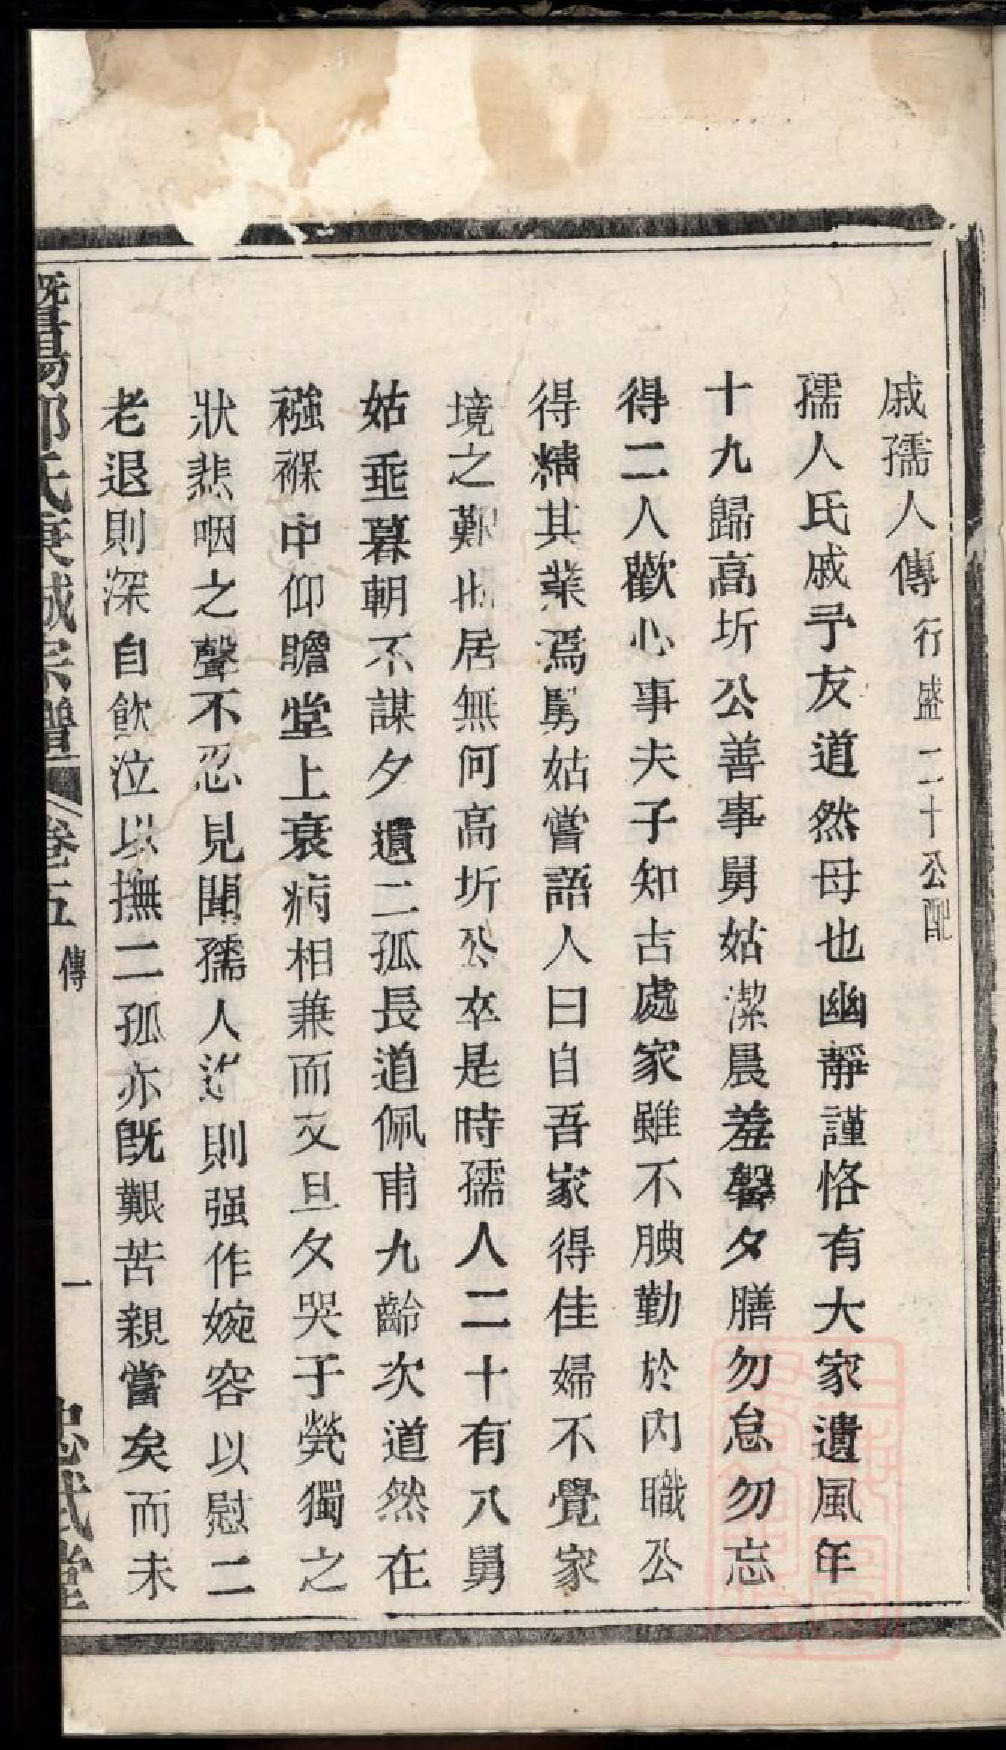 戚孺人傳 行盛二十公配
孺人氏戚予友道然母也幽靜謹恪有大家遺風年
十九歸高圻公善事舅姑潔晨羞馨夕膳勿怠勿忘
得二人歡心事夫子知古處家雖不腆勤於內職公
得精其業焉舅姑嘗語人曰自吾家得佳婦不覺家
境之艱也居無何高圻公卒是時孺人二十有八舅
姑垂暮朝不謀夕遺二孤長道佩甫九齡次道然在
襁褓中仰瞻堂上衰病相兼而又旦夕哭子煢獨之
狀悲咽之聲不忍見聞孺人進則强作婉容以慰二
老退則深自飲泣以撫二孤亦旣艱苦親嘗矣而未
暨陽 氏 宗譜 卷五 傳 一 忠 堂